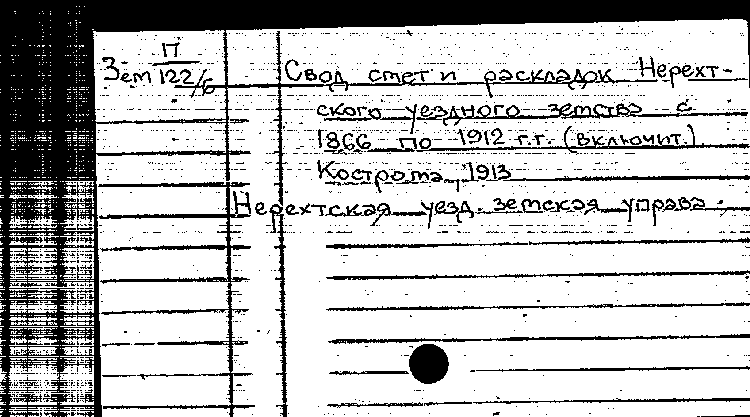 П
Зем 122/6
Свод смет и раскладок Нерехт-
ского уездного земства с
1866 по 1912 г.г. (включит.)
Кострома, 1913
Нерехтская уезд. земская управа.